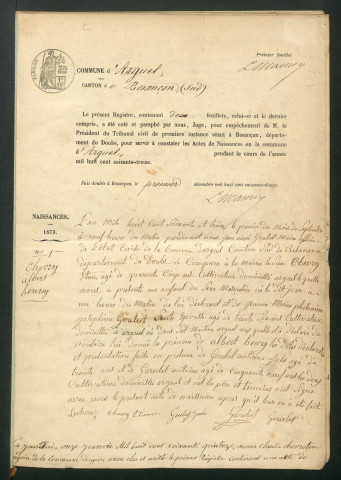 Premier feuillet
COMMUNE d'Arguel,
CANTON de Besançon (Sud)
Le présent Registre, contenant deux feuillets, celui-ci et le dernier
compris, a été coté et paraphé par nous, Juge, pour empêchement de M. le
Président du Tribunal civil de première instance séant à Besançon, départe-
ment du Doubs, pour servir à constater les Actes de Naissances en la commune
d'Arguel pendant le cours de l'année
mil huit cent soixante-treize.
Fait double à Besançon, le premier décembre mil huit cent soixante-douze.
NAISSANCES.
1873.
n° 1
Chevry
albert
henry
L'an Mil huit Cent Soixante et treize le premier du Mois de Septembre
a neuf heure du Matin pardevant nous
de l'état Civil de la Commune d'arguel Canton Sud de Besançon
département du Doubs à Comparu à la mairie le sieur Chevry
age de quarante Cinq ans Cultivateur domicilié arguel le quelle
nous à présenté un enfant du Sexe Masculin né le dit jour à
heure du Matin de lui déclarant et de jeanne Marie philomène
Joséphine Goulot age de trente ans Cultivatrice
domicilié à arguel
lui donné le prénom de albert henry les dits déclaration
et présentation faits en présence de Goulot antoine age de
trente ans et de antoine age de Cinquante neuf ans les deux
Cultivateurs domicilié arguel et ont le père et témoins ont Signé
avec nous le présent acte de naissance après qu'il leur en a été fait
Lecture
Goulot
onze janvier Mil huit cent soixante quatorze, nous
de la Commune d'arguel, avons clos et arrêté le présent Registre contenant un acte de